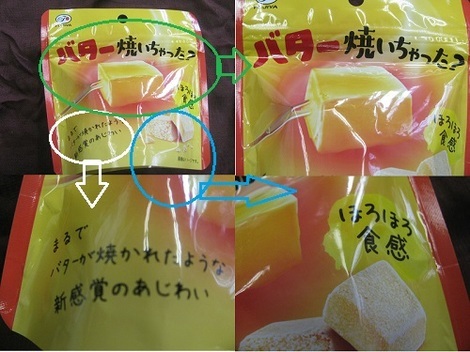 バター焼いちゃった?
ほろほろ
食感
まるで
バターが焼かれたような
新感覚のあじわい
バター焼いちゃった?
ほろほろ
食感
まるで
バターが焼かれたような
新感覚のあじわい
ほろほろ
食感